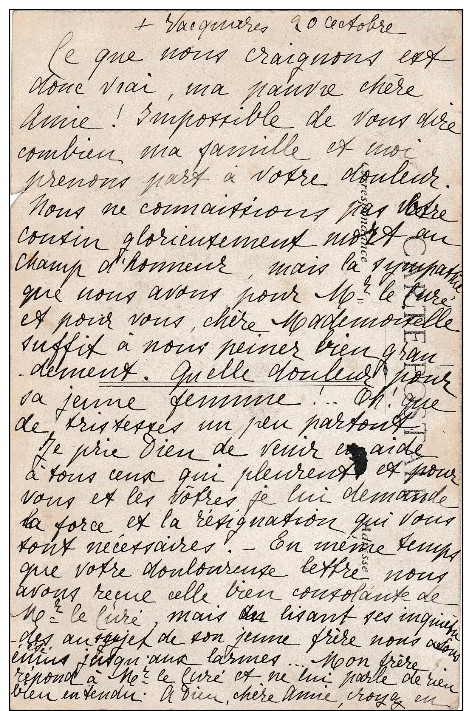 + Vacquières 20 octobre
Ce que nous craignons est
donc vrai, ma pauvre chère
Amie ! Impossible de vous dire
combien ma famille et moi
prenons part à votre douleur.
Nous ne connaissions pas votre
cousin glorieusement mort au
champ d'honneur, mais la sympathie
que nous avons pour Mr. le Curé
et pour vous chère Mademoiselle
suffit à nous peiner bien gran
-dement. Quelle douleur pour
sa jeune femme !.. Oh ! que
de tristesses un peu partout
Je prie Dieu de venir en aide
à tous ceux qui pleurent et pour
vous et les vôtres je lui demande
la force et la résignation qui vous
sont nécessaires. - En même temps
que votre douloureuse lettre nous
avons reçue celle bien consolante de
Mr. le Curé, mais en lisant ses inquiétu
des au sujet de son jeune frère nous avons
émus jusqu'aux larmes... Mon frère
répond à Mr. le Curé et ne lui parle de rien
bien entendu. A Dieu, chère Amie, croyez en-
CARTE POSTALE
Correspondance
Adresse